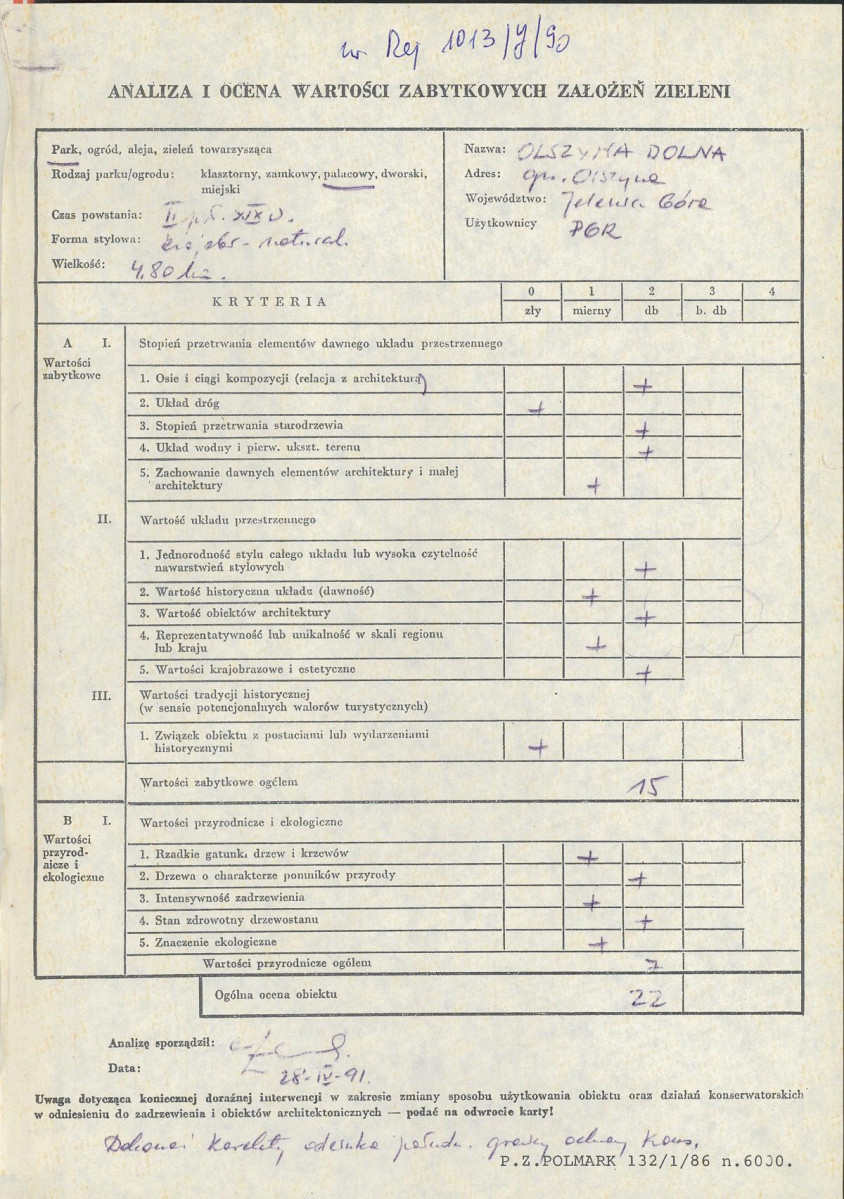 nr Rej 1013/J/90
ANALIZA I OCENA WARTOŚCI ZABYTKOWYCH ZAŁOŻEŃ ZIELENI
Park, ogród, aleja, zieleń towarzysząca
Rodzaj parku/ogrodu: klasztorny, zamkowy, pałacowy, dworski,
miejski
Czas powstania: II poł. XIX w.
Forma stylowa: krajobr - natural.
Wielkość: 4.80 ha.
Nazwa: OLSZYNA DOLNA
Adres: gm. Olszyna
Województwo: Jelenia Góra
Użytkownicy PGR
KRYTERIA
0 1 2 3 4
zły mierny db b. db
A I. Stopień przetrwania elementów dawnego układu przestrzennego
Wartości
zabytkowe
1. Osie i ciągi kompozycji (relacja z architekturą) +
2. Układ dróg +
3. Stopień przetrwania starodrzewia +
4. Układ wodny i pierw. ukszt. terenu +
5. Zachowanie dawnych elementów architektury i małej
architektury +
II. Wartość układu przestrzennego
1. Jednorodność stylu całego układu lub wysoka czytelność
nawarstwień stylowych +
2. Wartość historyczna układu (dawność) +
3. Wartość obiektów architektury +
4. Reprezentatywność lub unikalność w skali regionu
lub kraju +
5. Wartości krajobrazowe i estetyczne +
III. Wartości tradycji historycznej
(w sensie potencjonalnych walorów turystycznych)
1. Związek obiektu z postaciami lub wydarzeniami
historycznymi +
Wartości zabytkowe ogółem 15
B I. Wartości przyrodnicze i ekologiczne
Wartości
przyrod-
nicze i
ekologiczne
1. Rzadkie gatunki drzew i krzewów +
2. Drzewa o charakterze pomników przyrody +
3. Intensywność zadrzewienia +
4. Stan zdrowotny drzewostanu +
5. Znaczenie ekologiczne +
Wartości przyrodnicze ogółem 7
Ogólna ocena obiektu 22
Analizę sporządził:
Data: 28-IV-91.
Uwaga dotycząca koniecznej doraźnej interwencji w zakresie zmiany sposobu użytkowania obiektu oraz działań konserwatorskich
w odniesieniu do zadrzewienia i obiektów architektonicznych — podać na odwrocie karty!
Dokonać korekty odcinka połudn. granicy ochrony kons.
P.Z.POLMARK 132/1/86 n.6000.